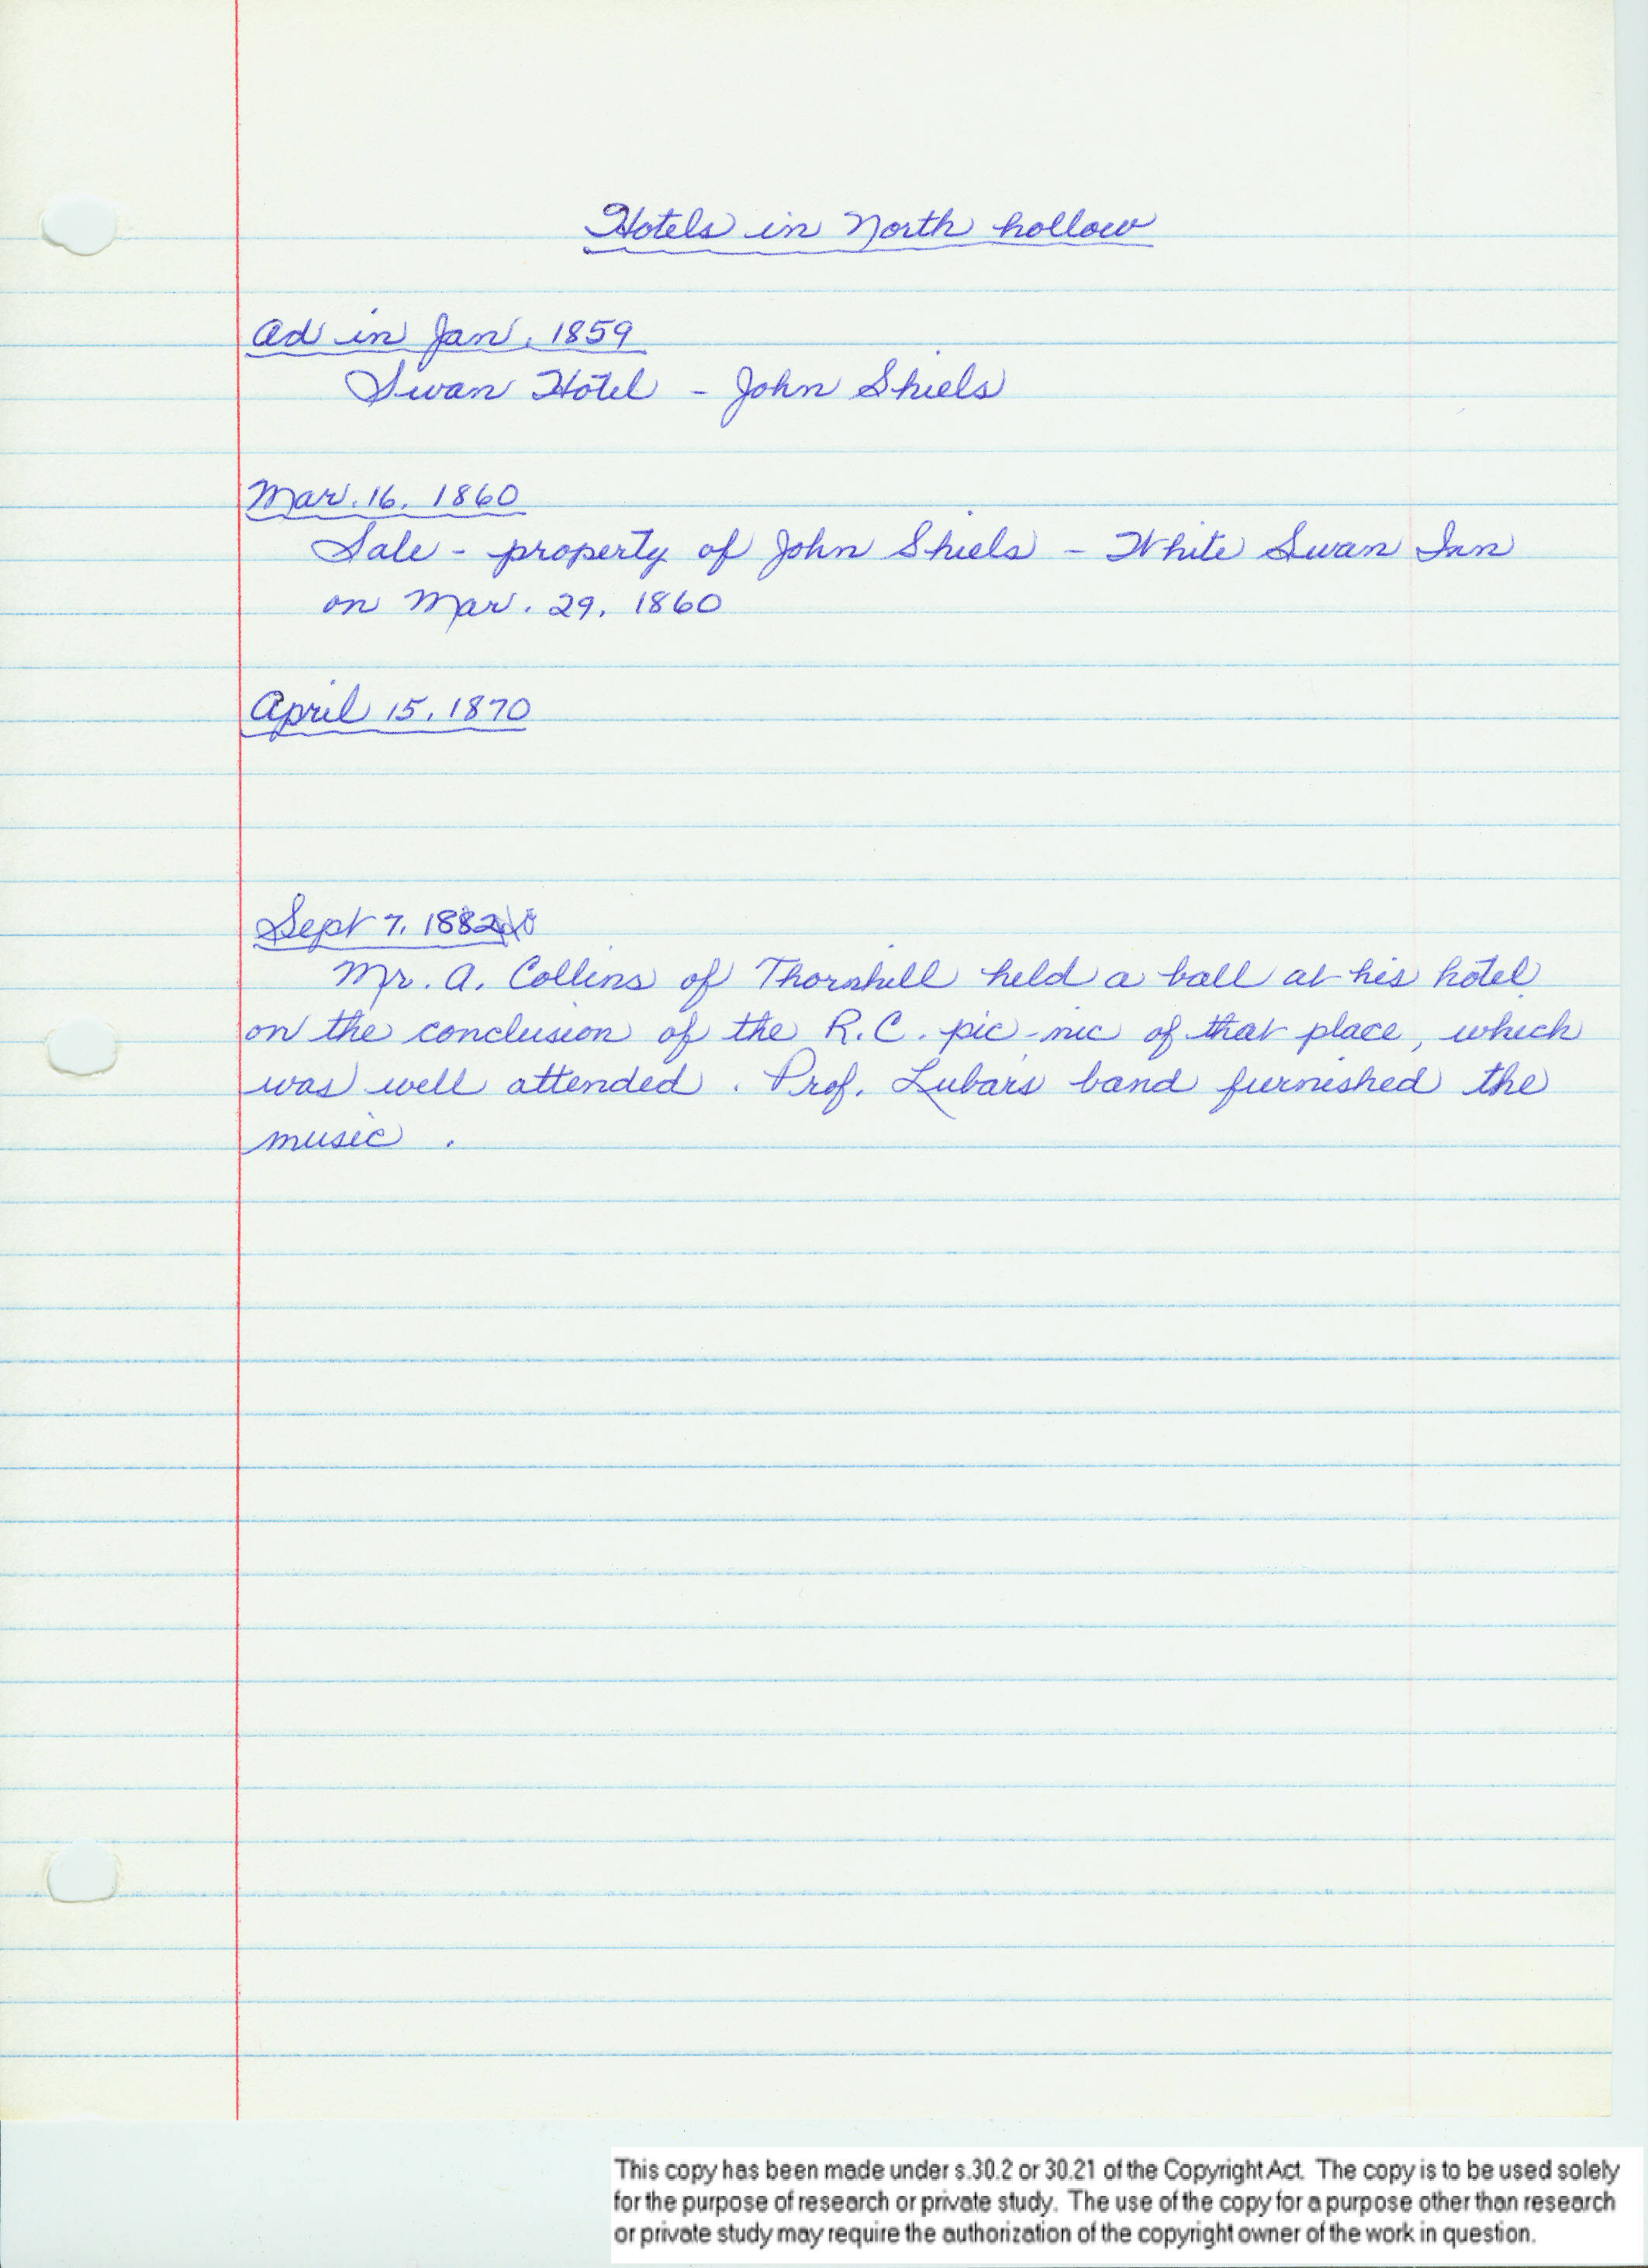 Hotels in North hollow
Ad in Jan. 1859
Swan Hotel - John Shiels
Mar. 16, 1860
Sale - property of John Shiels - White Swan Inn
on Mar. 29, 1860
April 15, 1870
Sept 7, 1882
Mr. A. Collins of Thornhill held a ball at his hotel
on the conclusion of the R.C. pic-nic of that place, which
was well attended. Prof. Lubar's band furnished the
music.
This copy has been made under s.30.2 or 30.21 of the Copyright Act. The copy is to be used solely
for the purpose of research or private study. The use of the copy for a purpose other than research
or private study may require the authorization of the copyright owner of the work in question.